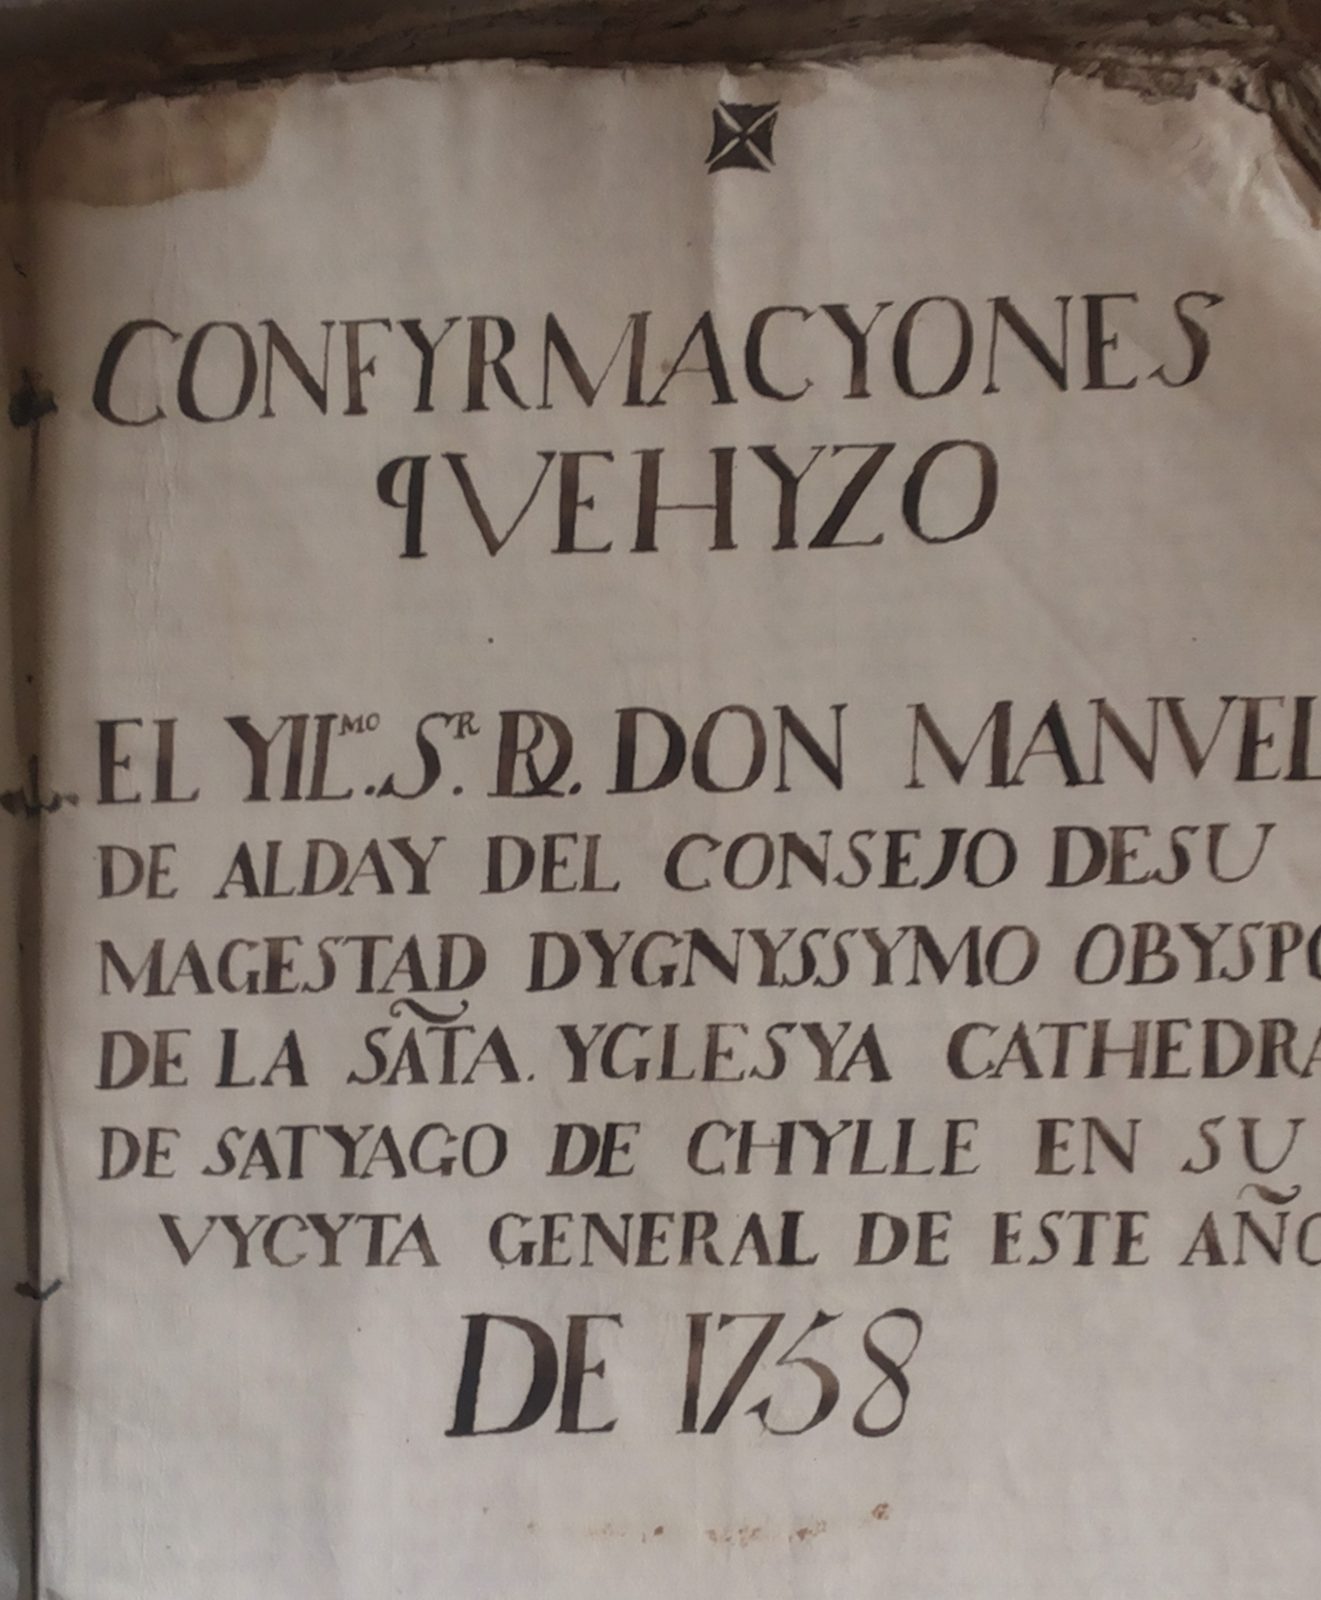 CONFYRMACYONES
qVEHYZO
EL YIL.MO S.R DR. DON MANVEL
DE ALDAY DEL CONSEJO DESU
MAGESTAD DYGNYSSYMO OBYSPO
DE LA SÃTA. YGLESYA CATHEDRA
DE SATYAGO DE CHYLLE EN SU
VYCYTA GENERAL DE ESTE AÑO
DE 1758